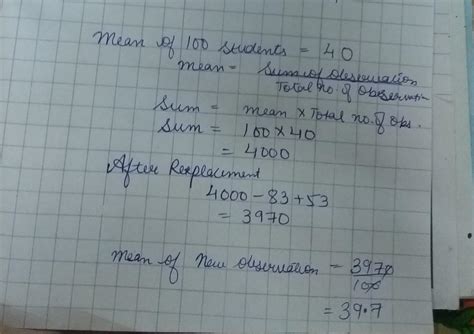 Mean of 100 students = 40
mean = Sum of Observation
Total no. of Observation
Sum = mean × Total no. of Obs.
Sum = 100 × 40
= 4000
After Rexplacment
4000 – 83 + 53
= 3970
Mean of New Observation = 3970
100
= 39.7